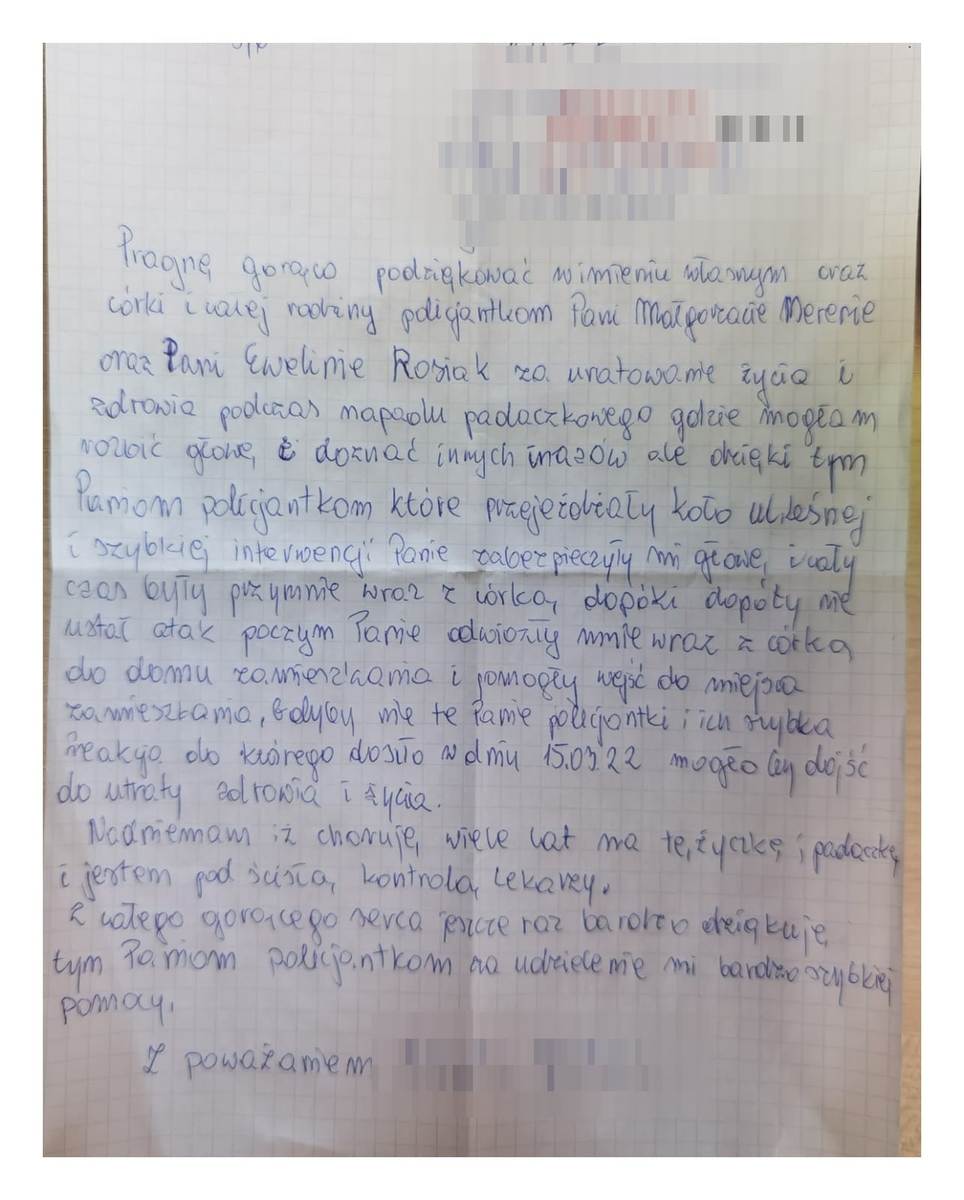 Pragnę gorąco podziękować w imieniu własnym oraz
córki i całej rodziny policjantkom Pani Małgorzacie Merenie
oraz Pani Ewelinie Rosiak za uratowanie życia i
zdrowia podczas napadu padaczkowego gdzie mogłam
rozbić głowę i doznać innych urazów ale dzięki tym
Paniom policjantkom które przejeżdżały koło ul. Leśnej
i szybkiej interwencji Panie zabezpieczyły mi głowę i cały
czas były przymnie wraz z córką, dopóki dopóty nie
ustał atak poczym Panie odwiozły mnie wraz z córką
do domu zamieszkania i pomogły wejść do miejsca
zamieszkania, Gdyby nie te Panie policjantki i ich szybka
reakcja do którego doszło w dniu 15.03.22 mogło by dojść
do utraty zdrowia i życia.
Nadmieniam iż choruję wiele lat na tężyczkę i padaczkę
i jestem pod ścisłą kontrolą Lekarzy.
Z całego gorącego serca jeszcze raz bardzo dziękuję
tym Paniom policjantkom za udzielenie mi bardzo szybkiej
pomocy.
Z poważaniem